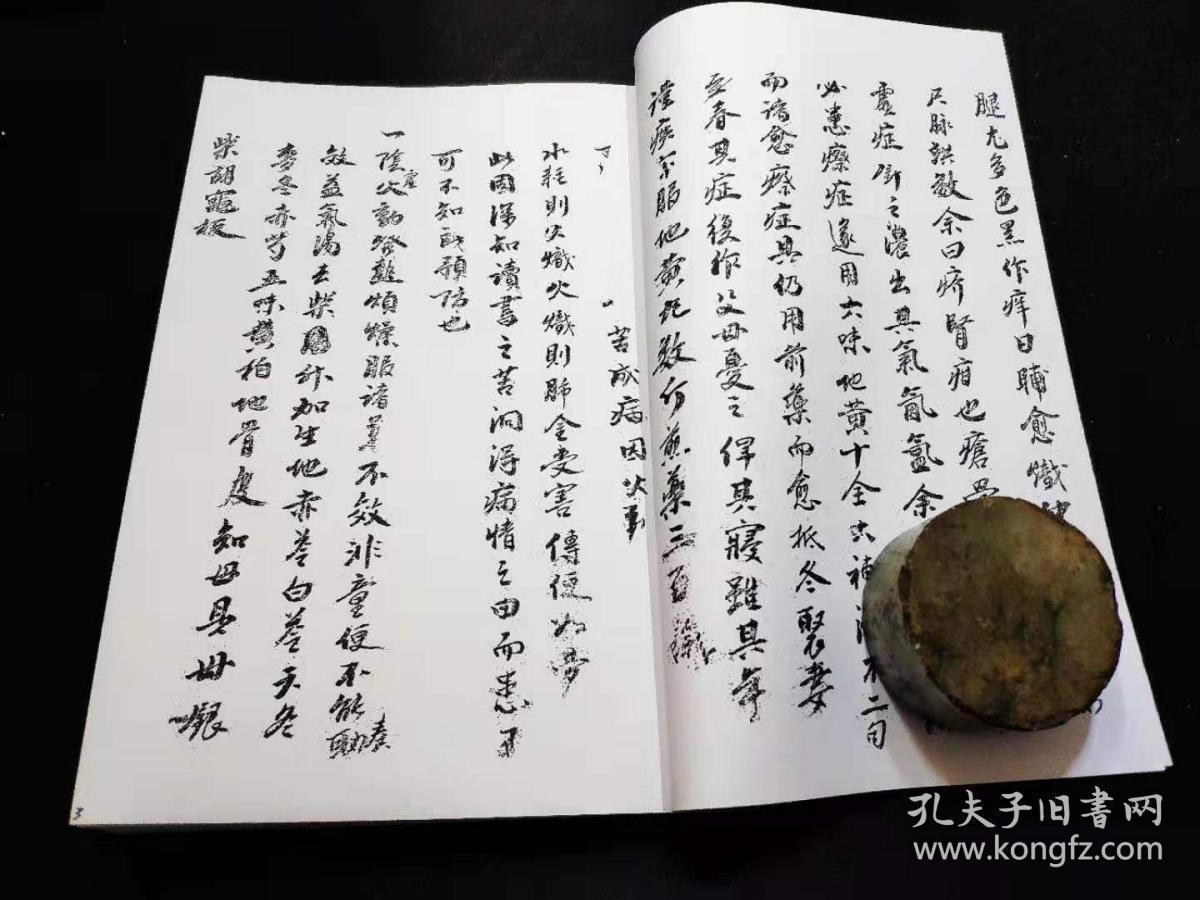 腿尤多色黑作痒日晡愈熾
尺脉洪数余曰疥腎疳也瘡
虚症 之濃出其氣氤氲余
必患瘵症遂用六味地黄十全 補 不二旬
而諸愈瘵症具仍用前藥而愈抵冬娶妻
至春其症復作父母憂之俾其寢雖其年
謹疾 服地黄 数 煎藥三百
苦成病因火
水耗則火熾火熾則肺金受害傳便如
此因深知讀書之苦洞得病情之由而患
可不知 預防也
一陰虚火動 煩燥服諸 不效非童便不能
奏
效益氣湯去柴 加生地赤苓白苓天冬
麥冬赤芍五味黄柏地骨皮知母貝母
柴胡 板
3
孔夫子旧书网
www.kongfz.com